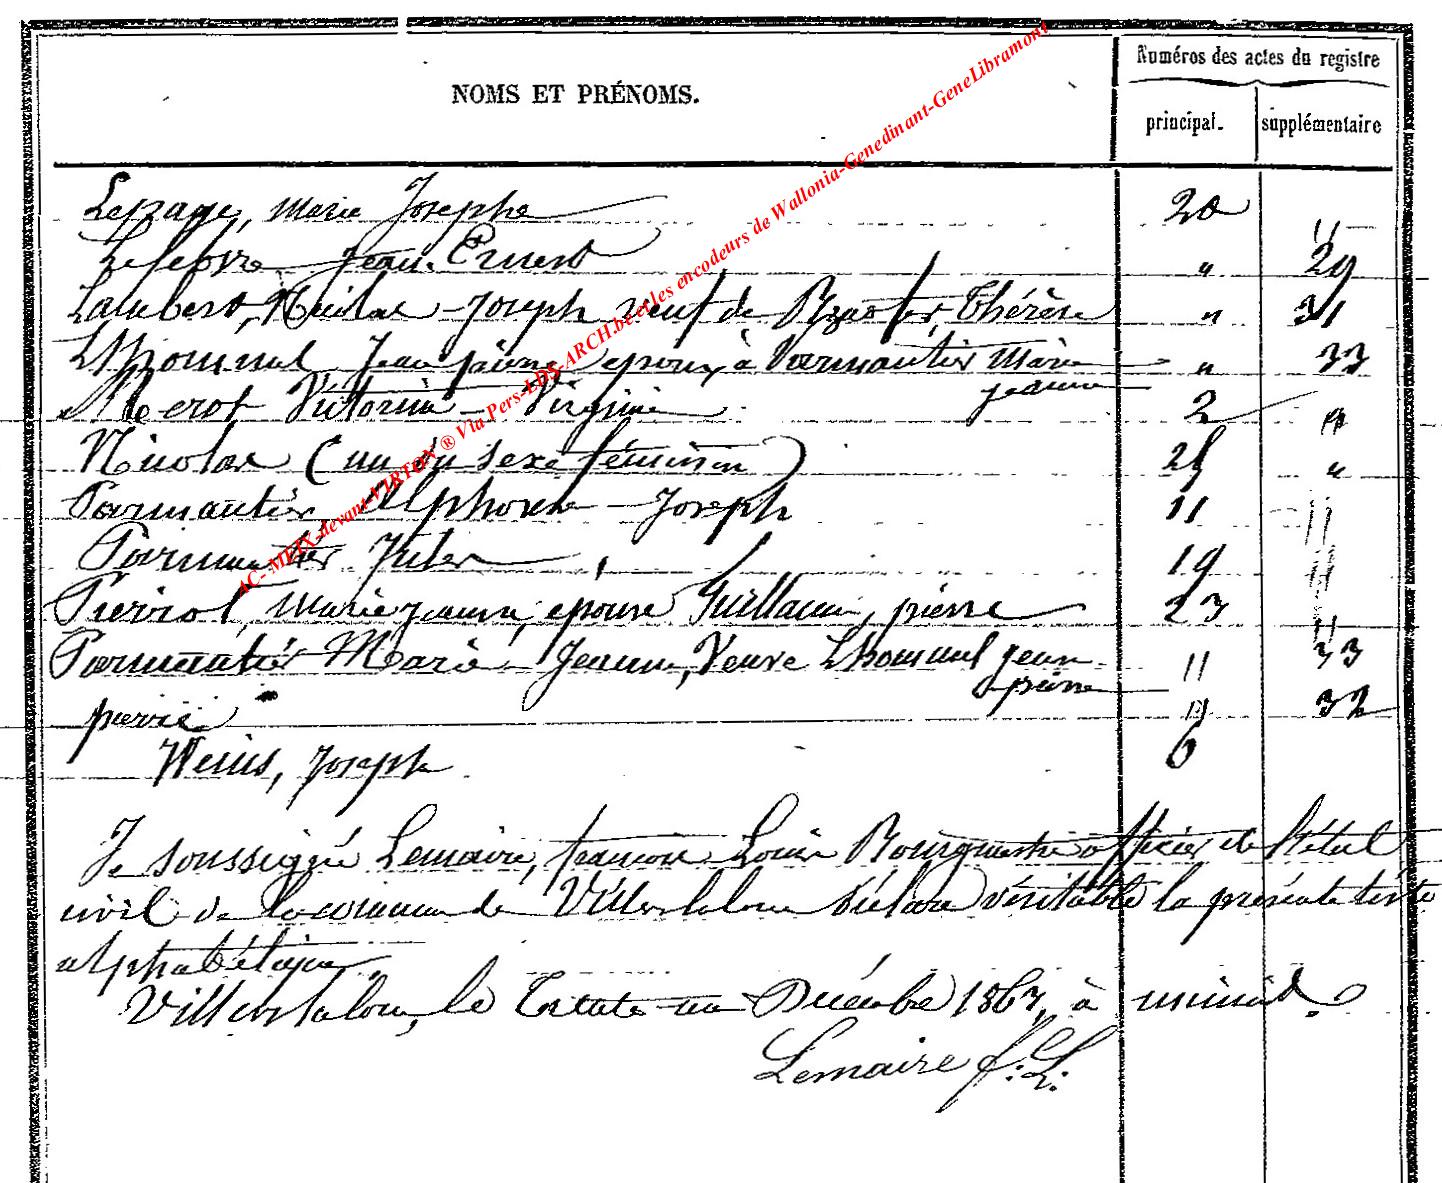 NOMS ET PRÉNOMS.
Numéros des actes du registre
principal. supplémentaire
Lepage, Marie Josephe 20 "
Lefebvre Jean Ernest " 29
Lambert, Nicolas Joseph veuf de Thérèse " 31
Lhommel Jean pierre epoux à Parmantier Marie " 33
jeanne
Merot Victorine Virginie 2 "
Nicolas (un du sexe féminin) 25 "
Parmantier Alphonse Joseph 11 "
Parmantier Jules 19 "
Pierrot, Marie jeanne, epouse Guillaume, pierre 23 "
Parmantier Marie Jeanne, Veuve Lhommel jean " 33
pierre
pierre " 32
Wenus, Joseph 6
Je soussigné Lemaire, francois Louis Bourgmestre officier de l'état
civil de la commune de Villers la loue déclare véritable la présente liste
alphabétique
Villers la loue, le Trente un Décembre 1867, à minuit.
Lemaire f: L:
AC- MEIX-devant-VIRTON ® Via Pers-LDS-ARCH.be et les encodeurs de Wallonia-Genedinant-GeneLibramont